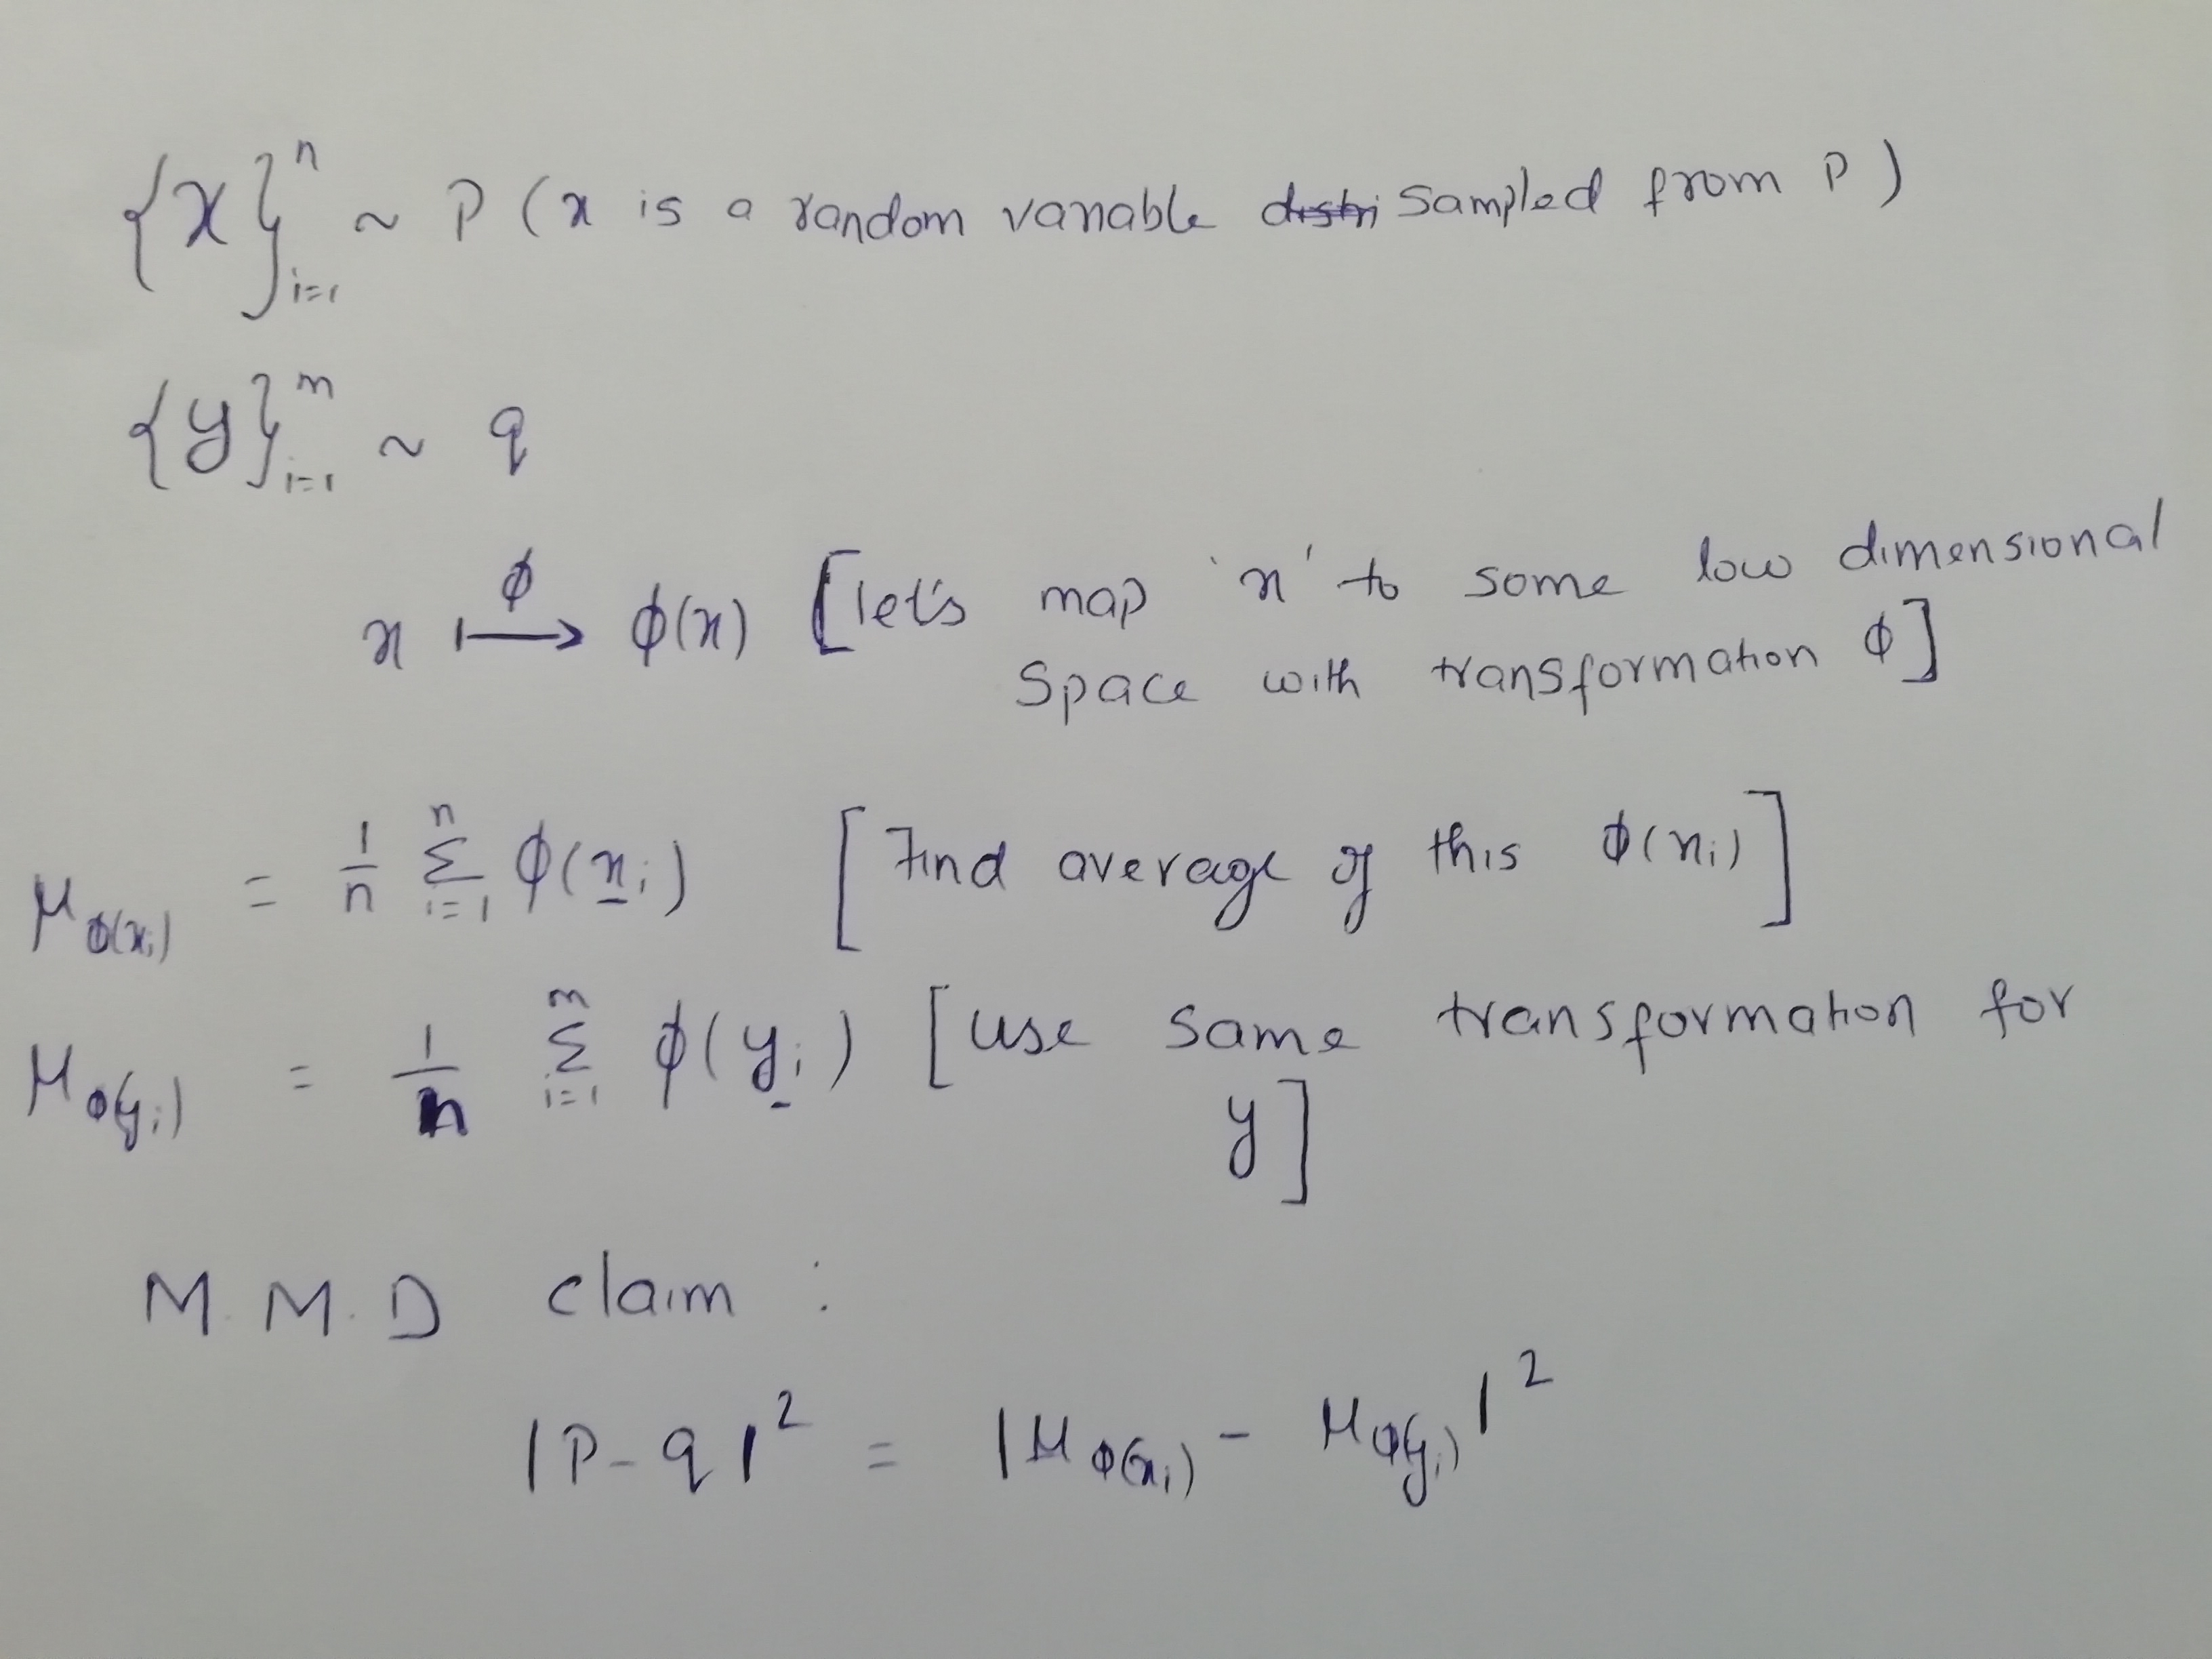 {x}ⁿᵢ₌₁ ~ P (x is a random variable distri sampled from P)
{y}ᵐᵢ₌₁ ~ q
x ⟼^ϕ ϕ(x) [let's map 'x' to some low dimensional
space with transformation ϕ]
μ_ϕ(xᵢ) = 1/n Σⁿᵢ₌₁ ϕ(xᵢ) [Find average of this ϕ(xᵢ)]
μ_ϕ(yᵢ) = 1/n Σᵐᵢ₌₁ ϕ(yᵢ) [use same transformation for
y]
M.M.D claim :
|P-q|² = |μ_ϕ(xᵢ) - μ_ϕ(yᵢ)|²